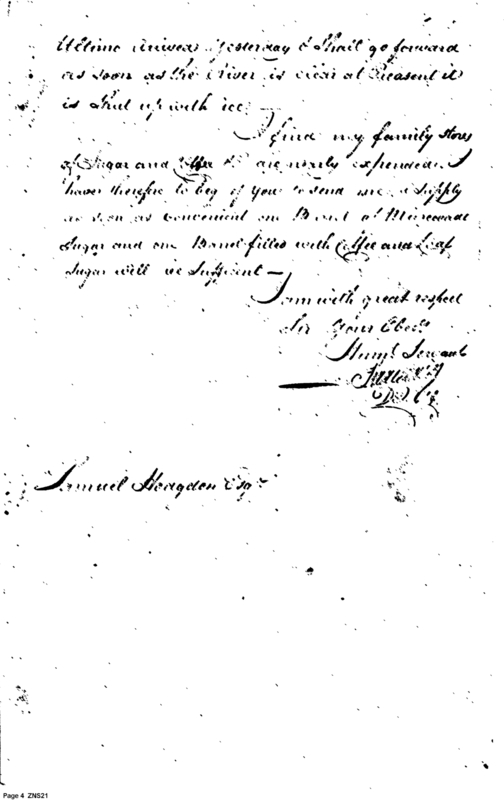 Ultimo arrived yesterday & Shall go forward
as soon as the River is clear at Preasent it
is Shut up with ice.
I find my family stores
of Sugar and Coffee &c are nearly expended I
have therefore to beg of you to send me a Supply
as soon as Convenient one Barrel of Muscovado
Sugar and one Barrel filled with Coffee and Loaf
Sugar will be Sufficient —
I am with great respect
Sir Your Obedt
Huml Servant
Samuel Hodgdon Esqr
Page 4 ZNS21